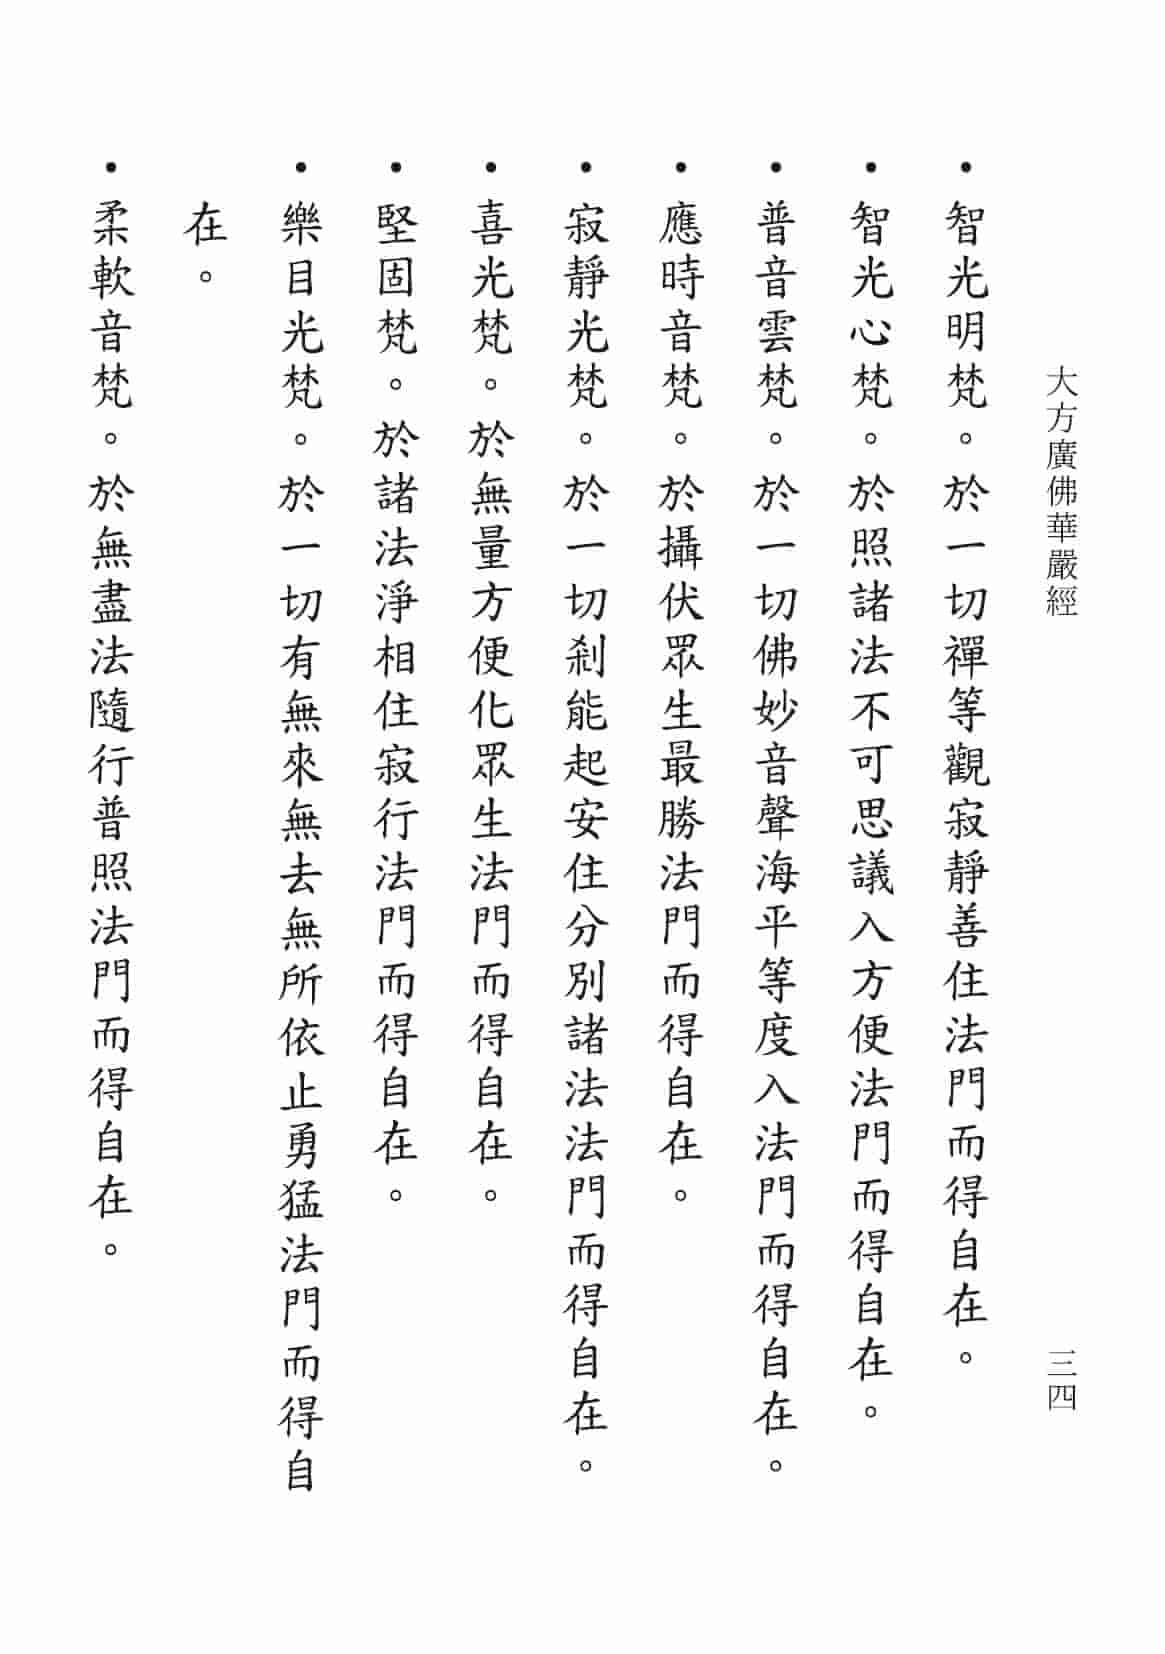 大方廣佛華嚴經
三四
•智光明梵。於一切禪等觀寂靜善住法門而得自在。
•智光心梵。於照諸法不可思議入方便法門而得自在。
•普音雲梵。於一切佛妙音聲海平等度入法門而得自在。
•應時音梵。於攝伏眾生最勝法門而得自在。
•寂靜光梵。於一切剎能起安住分別諸法法門而得自在。
•喜光梵。於無量方便化眾生法門而得自在。
•堅固梵。於諸法淨相住寂行法門而得自在。
•樂目光梵。於一切有無來無去無所依止勇猛法門而得自
在。
•柔軟音梵。於無盡法隨行普照法門而得自在。